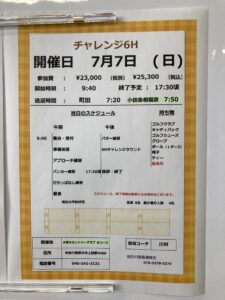 チャレンジ6H
開催日 7月7日 (日)
参加費 : ¥23,000 (税別) ¥25,300 (税込)
開始時刻 : 9:40 終了予定 : 17:30頃
送迎時間 : 町田 7:20 小田急相模原 7:50
当日のスケジュール 持ち物
午前 午後 ゴルフクラブ
キャディバッグ
9:40 集合・受付 パター練習 ゴルフシューズ
準備体操 6Hチャレンジラウンド グローブ
ボール
アプローチ練習 帽子
ティー
バンカー練習 17:30頃 挨拶・終了
打ちっぱなし練習
昼食
開催地
住所
電話番号 046-241-3131
開催コーチ 川村
当日の緊急連絡先